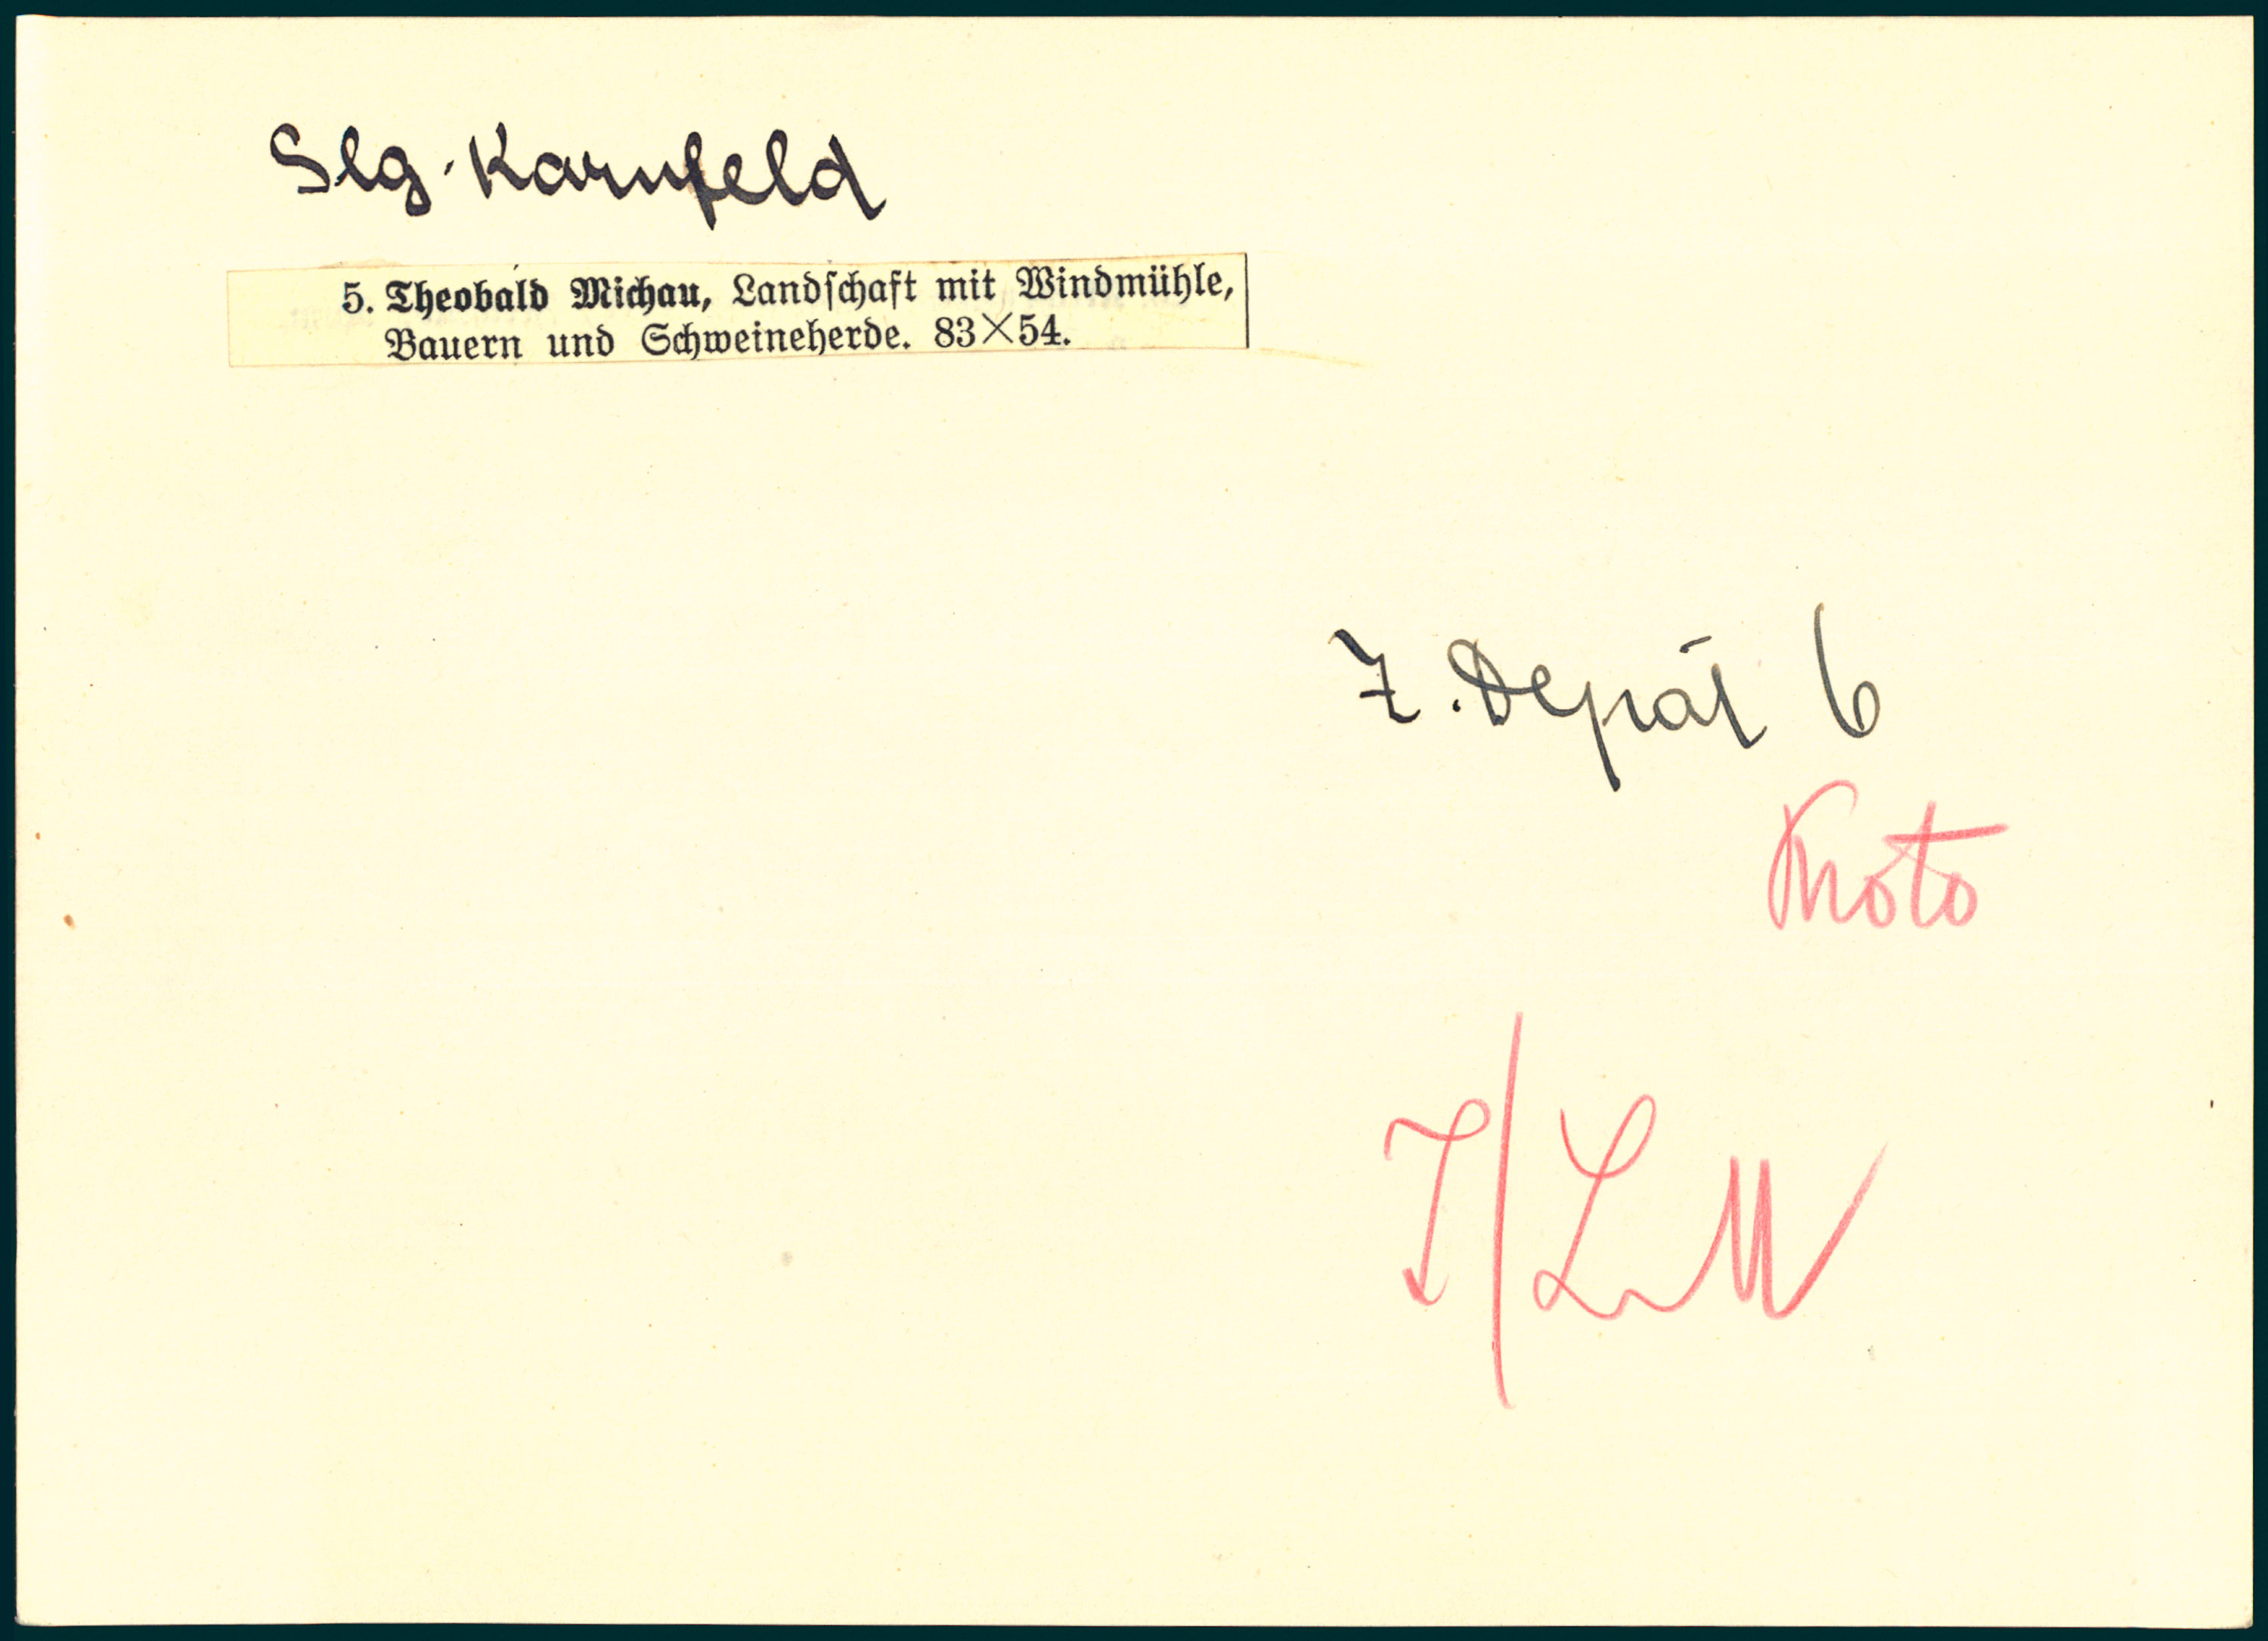 Slg. Kornfeld
5. Theobald Michau, Landschaft mit Windmühle,
Bauern und Schweineherde. 83×54.
Z. Depot 6
Photo